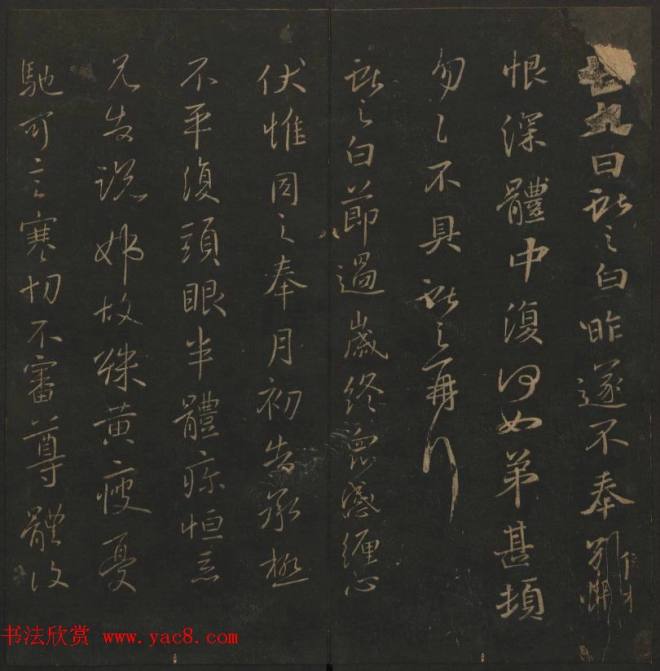 七九日獻之白昨遂不奉別悵
恨深體中復何如弟甚頓
匆匆不具獻之再行
獻之白節過歲終眾感纏心
伏惟同之奉月初告承極
不平復頭眼半體疼恒惡
兄告說姊故殊黃瘦憂
馳可言寒切不審尊體復
书法欣赏 www.yac8.com